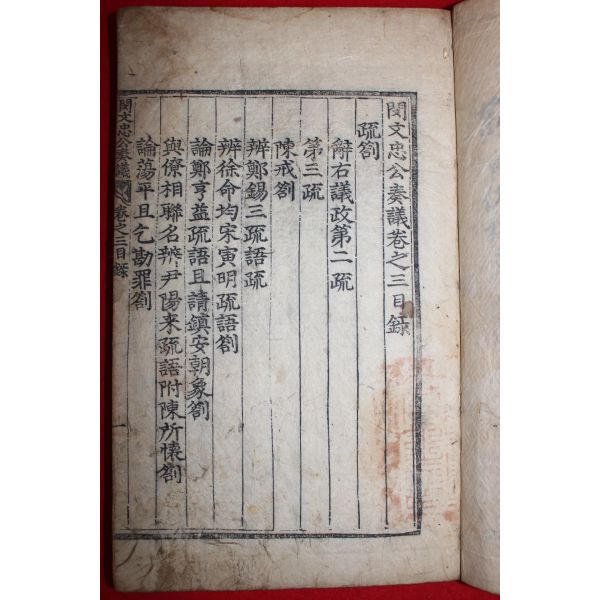 閔文忠公奏議卷之三目錄
疏劄
辭右議政第二疏
第三疏
陳戒劄
辨鄭錫三疏語疏
辨徐命均宋寅明疏語劄
論鄭亨益疏語且請鎮安朝象劄
與僚相聯名辨尹陽來疏語附陳所懷劄
論蕩平且乞勘罪劄
閔文忠公奏議 卷之三目錄 一